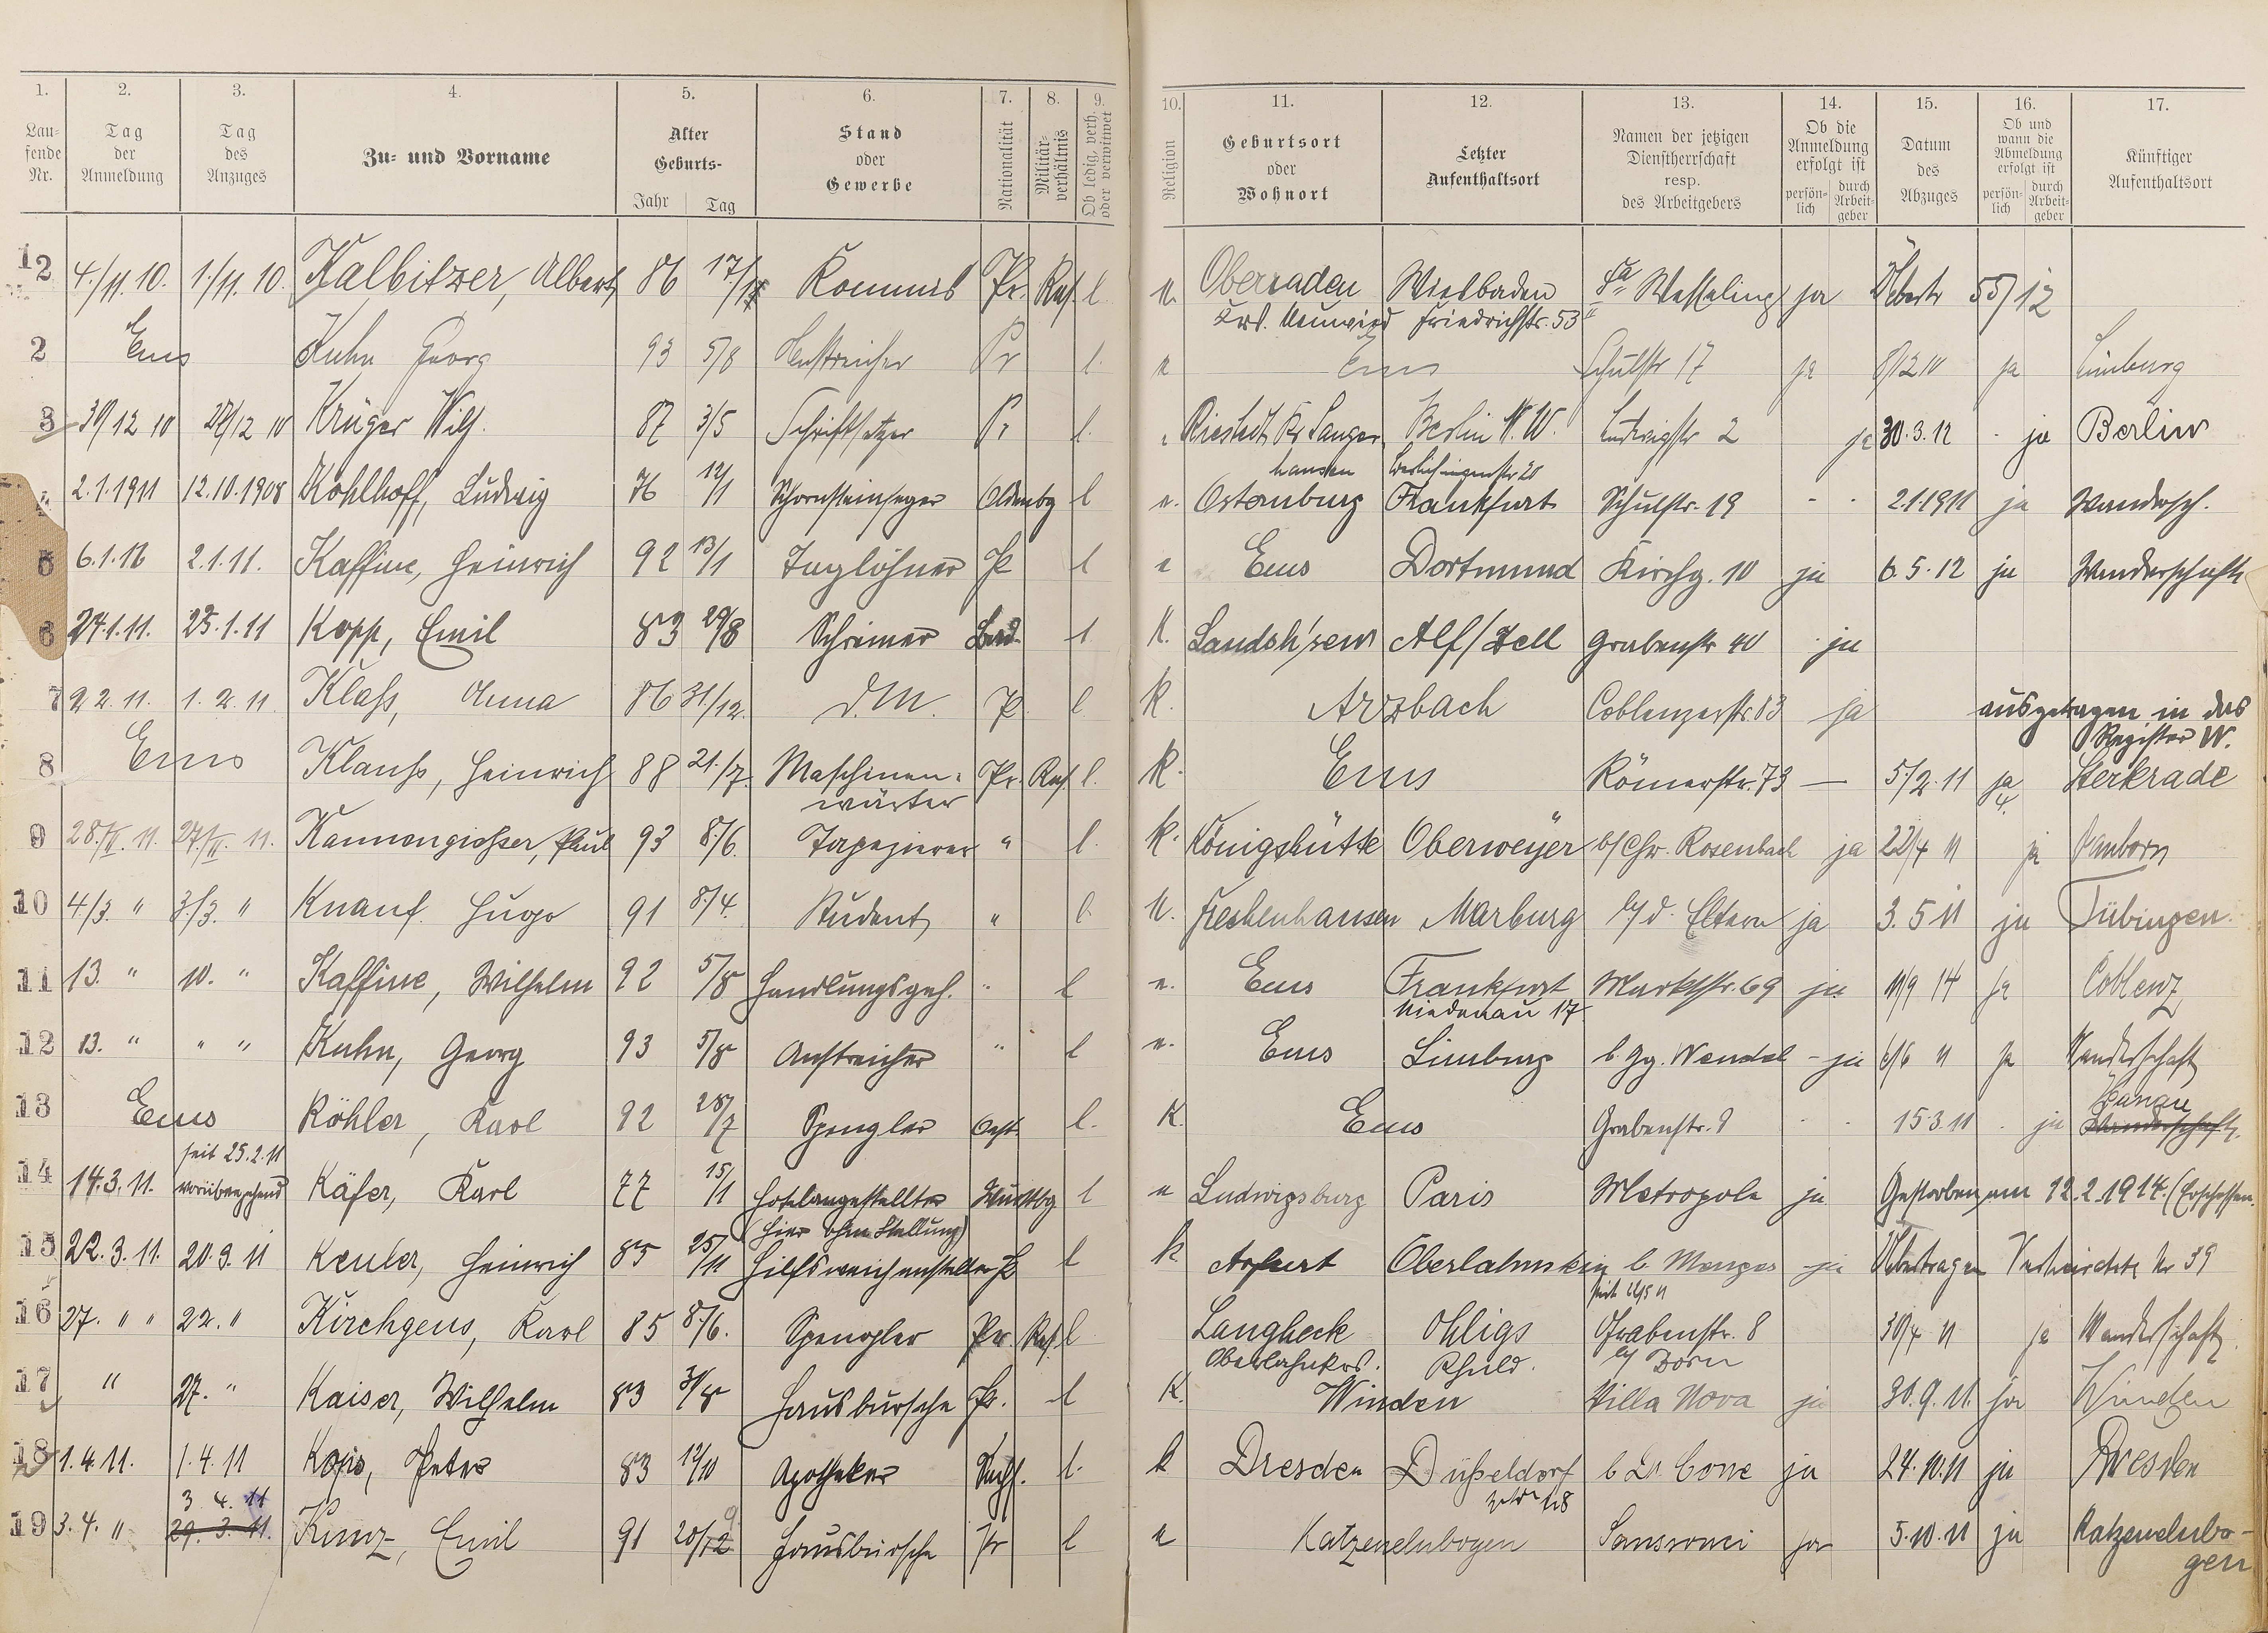 1. 2. 3. 4. 5. 6. 7. 8. 9. 10. 11. 12. 13. 14. 15. 16. 17.
Lau-
fende
Nr.
Tag
der
Anmeldung
Tag
des
Anzuges
Zu- und Vorname
Alter
Geburts-
Jahr Tag
Stand
oder
Gewerbe
Nationalität
Militär-
verhältnis
Ob ledig, verh.
oder verwitwet
Religion
Geburtsort
oder
Wohnort
Letzter
Aufenthaltsort
Namen der jetzigen
Dienstherrschaft
resp.
des Arbeitgebers
Ob die
Anmeldung
erfolgt ist
persön-
lich
durch
Arbeit-
geber
Datum
des
Abzuges
Ob und
wann die
Abmeldung
erfolgt ist
persön-
lich
durch
Arbeit-
geber
Künftiger
Aufenthaltsort
4./11. 10. 1./11. 10. Kalbitzer, Albert 86 Kommis Pr. Res. l. Oberraden Wiesbaden Fa Wesseling ja 55/12
Krs. Neuwied Friedrichstr. 53
2 Ems Kuhn Georg 93 5/8 Pr l. Ems Schulstr 17 ja 8/12 10 ja Limburg
3 30/12 10 Krüger Wilh. 87 3/5 Schriftsetzer Pr l. Riestedt Kr Sanger Berlin N.W. Ludwigstr 2 ja 30.3.12 ja Berlin
hausen
2.1.1911 12.10.1908 Kohlhoff, Ludwig 76 12/1 Schornsteinfeger Oldenbg l e. Osternburg Frankfurt Schulstr. 19 - - 2.1.1911 ja Wandersch.
5 2.1.11. Kaffine, Heinrich 92 13/1 Taglöhner P l e Ems Dortmund Kirchg. 10 ja 6.5.12 ja Wanderschaft
6 24.1.11. 23.1.11 Kopp, Emil 83 29/8 Schreiner Bad. l K. Alf/Zell Grabenstr 40 ja
7 2 2. 11. 1. 2. 11 Klaß, Anna 86 31/12. d.M. P l K. Arzbach Coblenzerstr. 83 ja ausgetragen in das
Register W.
8 Ems Klauß, Heinrich 88 21./7. Maschinen- Pr. Res. l. K. Ems Römerstr. 73 — 5/2. 11 ja Sterkrade
wärter
9 28./II. 11. 27./II. 11. Kannengießer, Paul 93 8./6. Tapezierer " l. K. Königshütte Oberweyer b/Chr. Rosenbach ja 22/4 11 ja Hamborn
10 4/3. " 3./3. " Knauf Hugo 91 8./4. Student " l. Marburg b/d. Eltern ja 3. 5 11 ja Tübingen.
11 13. " 10. " Kaffine, Wilhelm 92 5/8 Handlungsgeh. " l e. Ems Frankfurt Marktstr. 69 ja 11/9 14 ja Coblenz
Niedenau 17
12 13. " " " Kuhn, Georg 93 5/8 Anstreicher " l e. Ems Limburg b. Gg. Wendel - ja 6/6 11 ja Wanderschaft
13 Ems Köhler, Karl 92 28/7 Spengler Oest. l. K. Ems Grabenstr. 8 - - 15.3.11 . ja Hanau
Wanderschaft.
seit 25.2.11
14 14.3.11. vorübergehend Käfer, Karl 77 15/11 Hotelangestellter Württbg l e Ludwigsburg Paris Metropole ja Gestorben am 12.2.1914. (Erschossen.
(hier ohne Stellung)
15 22.3.11. 20.3.11 Keuler, Heinrich 85 25/11 Hilfsweichensteller P l k Oberlahnstein b. Menges ja Übertragen Verheiratete Nr 39
16 27. " " 22. " Kirchgens, Karl 85 8./6. Spengler Pr. Res. l Langheck Ohligs Grabenstr. 8 30/4 11 ja Wanderschaft.
Oberlahnkrs. Rhnld. b/ Dorn
17 " 27. " Kaiser, Wilhelm 83 Hausbursche Pr. l K. Winden Villa Nova ja 30.9.11. ja Winden
18 1.4.11. 1.4.11 Peter 83 12/10 Apotheker Sachs. l. k Dresden Düsseldorf ja 24.10.11 ja Dresden
3. 4. 11
19 3. 4. " 29. 3. 11. Kunz, Emil 91 20/12 9 Hausbursche Pr l e Katzenelnbogen Sanssouci ja 5.10.11 ja Katzenelnbo-
gen